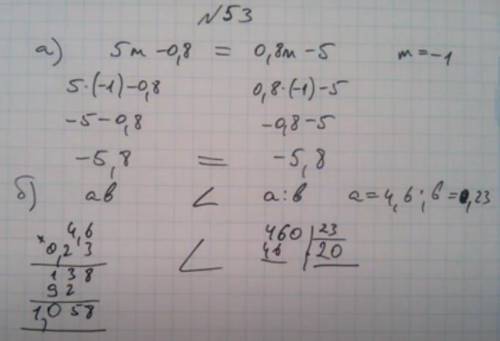 №53
а) 5m - 0,8 = 0,8m - 5 m = -1
5·(-1) - 0,8 0,8·(-1) - 5
-5 - 0,8 -0,8 - 5
-5,8 = -5,8
б) ab < a:b a = 4,6; b = 0,23
4,6 460 | 23
× 0,23 < 46 | 20
138
92
1,058